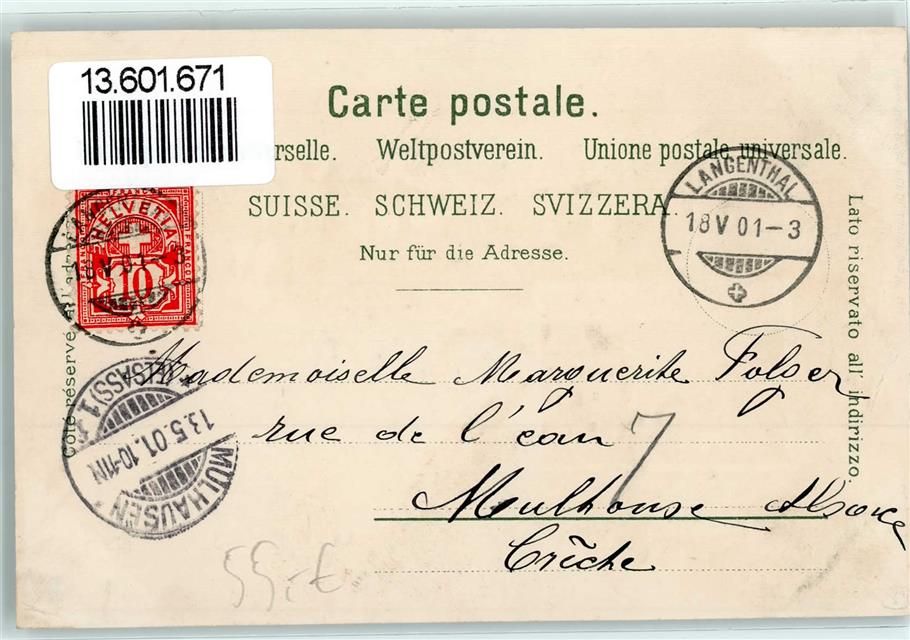 13.601.671
Carte postale.
rselle. Weltpostverein. Unione postale universale.
SUISSE. SCHWEIZ. SVIZZERA.
Nur für die Adresse.
LANGENTHAL
18 V 01-3
HELVETIA
FRANCO
10
18 V 01-3
Côté réservé à l'ad
Lato riservato all' indirizzo.
MÜLHAUSEN
(ELSASS) 1
13.5.01.10-11N
Mademoiselle Marguerite Folger
rue de l'eau 7
Mulhouse Alsace
Crèche
55,-€